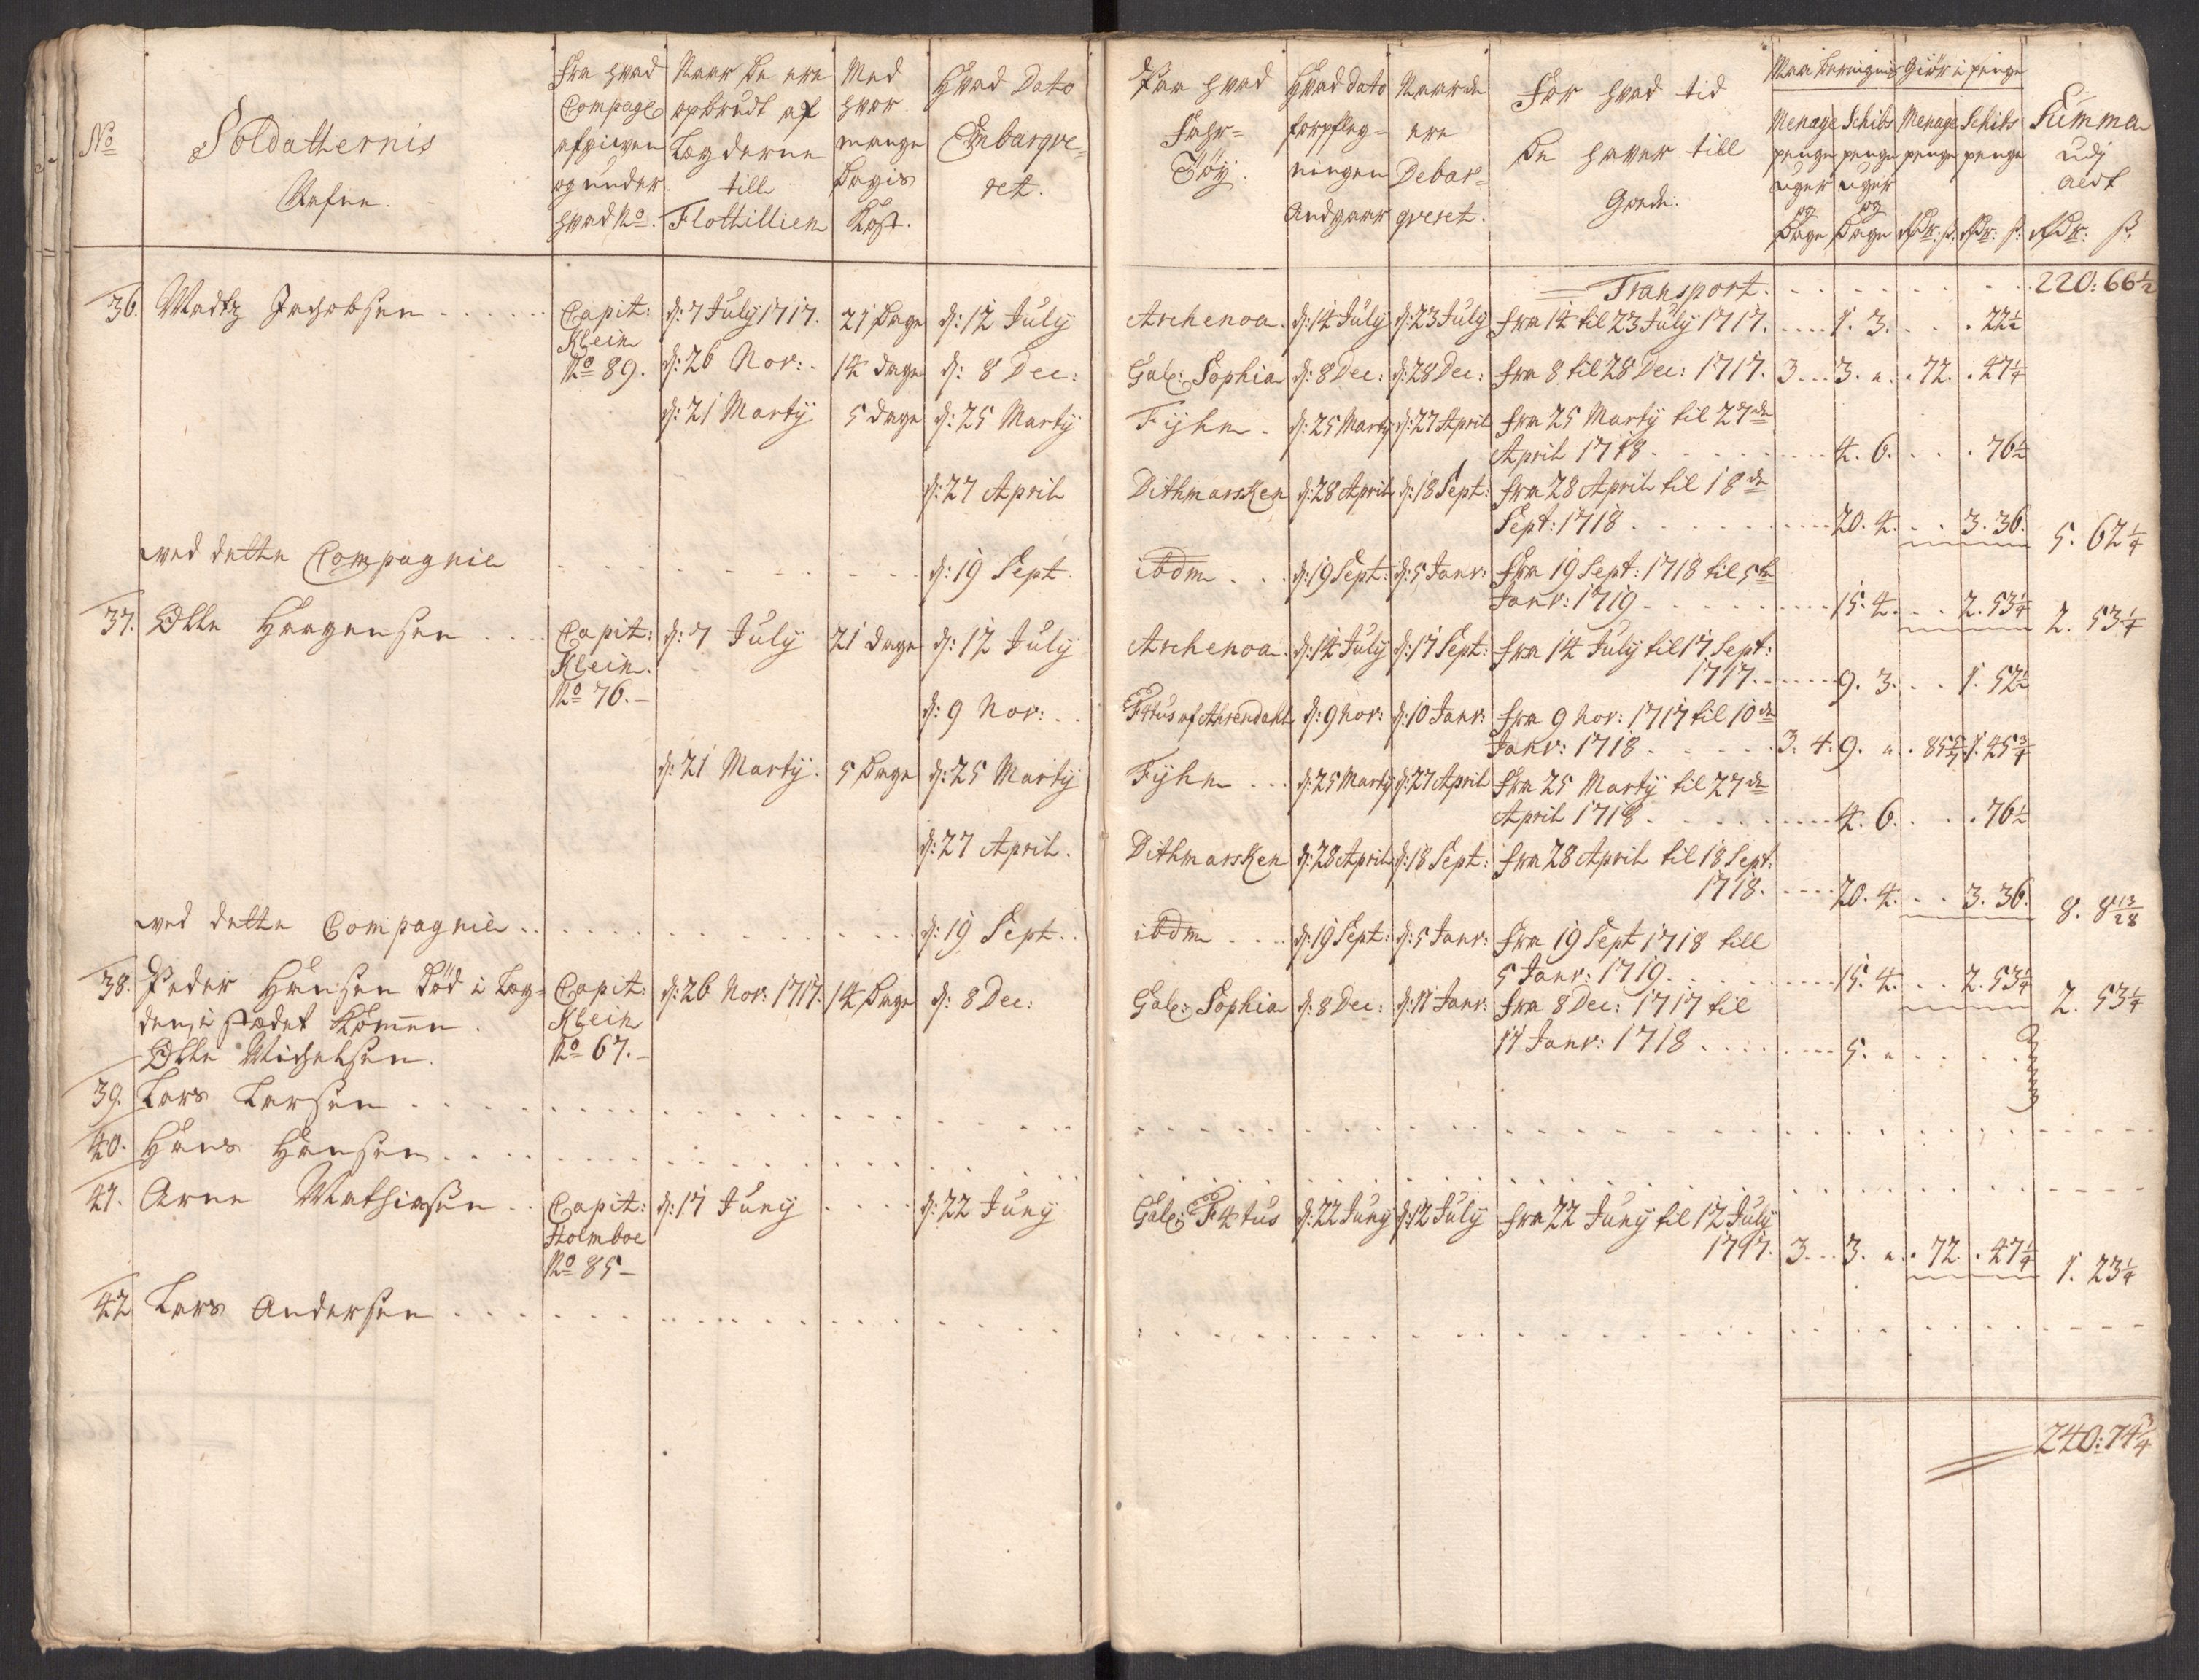 No
Soldatternis
Nafne.
Fra hvad
Compagℓ
afgiven
og under
hvad No.
Naar De ere
opbrudt af
Lægderne
till
Flottillien
Med
hvor
mange
Dagis
Kost.
Hvad Dato
Embarqve-
ret.
36. Madtz Jachobsen
Capit:
Klein
No 89.
d: 7 July 1717. 21 Dage d: 12 July
d: 26 Nov: 14 dage d: 8 Dec:
d: 21 Marty 5 dage d: 25 Marty
d: 27 April
ved dette Compagnie d: 19 Sept.
37. Olle Haagensen
Capit:
Klein.
No 76.
d: 7 July 21 dage d: 12 July
d: 9 Nov:
d: 21 Marty. 5 Dage d: 25 Marty
d: 27 April.
ved dette Compagnie d: 19 Sept.
38. Peder Hansen Död i Læg-
den, i stædet Kommen.
Olle Michelsen.
Capit:
Klein
No 67.
d: 26 Nov: 1717. 14 Dage d: 8 Dec:
39. Lars Larsen
40. Hans Hansen
41. Arne Mathiasen
Capit:
Holmboe
No 85
d: 17 Juny d: 22 Juny
42 Lars Andersen
Paa hvad
Fahr-
Töy.
Hvad dato
forpfleg-
ningen
Andgaar
Naar de
ere
Debar-
qveret.
For hvad tid
De haver till
Gode.
Giör i penge
Menage
penge
uger
og
Dage
Schibs
penge
uger
og
Dage
Menage
penge
Schibs
penge
Summa
udj
alt
Transport. 220: 66½
Archenoa. d: 14 July d: 23 July fra 14 til 23 July 1717. 1. 3. 22½
Gal: Sophia d: 8 Dec: d: 28 Dec: fra 8 til 28 Dec: 1717. 3 3. 72. 47¼
Fyhn d: 25 Marty d: 27 April fra 25 Marty til 27de
April 1718 4. 6. 76½
Dithmarsken d: 28 April d: 18 Sept: fra 28 April til 18de
Sept: 1718 20. 4. 3. 36. 5. 62¼
ibdm d: 19 Sept: d: 5 Janr: fra 19 Sept: 1718 til 5te
Janr: 1719 15. 4. 2. 53¼ 2. 53¼
Archenoa d: 14 July d: 17 Sept: fra 14 July til 17 Sept:
1717. 9. 3. 1. 52½
F4tus af Ahrendahl d: 9 Nov: d: 10 Janr: fra 9 Nov: 1717 til 10de
Janr: 1718 3. 4. 9. 85 5/7 1. 45¾
Fyhn d: 25 Marty d: 27 April fra 25 Marty til 27de
April 1718 4. 6. 76½
Dithmarsken d: 28 April d: 18 Sept: fra 28 April til 18 Sept:
1718. 20. 4. 3. 36. 8. 8 13/28
ibdm d: 19 Sept: d: 5 Janr: fra 19 Sept 1718 till
5 Janr: 1719. 15. 4. 2. 53¼ 2. 53¼
Gal: Sophia d: 8 Dec: d: 11 Janr: fra 8 Dec: 1717 til
11 Janr: 1718 5.
Gal: F4tus d: 22 Juny d: 12 July fra 22 Juny til 12 July
1717. 3 3. 72. 47¼ 1. 23¼
240: 74¾